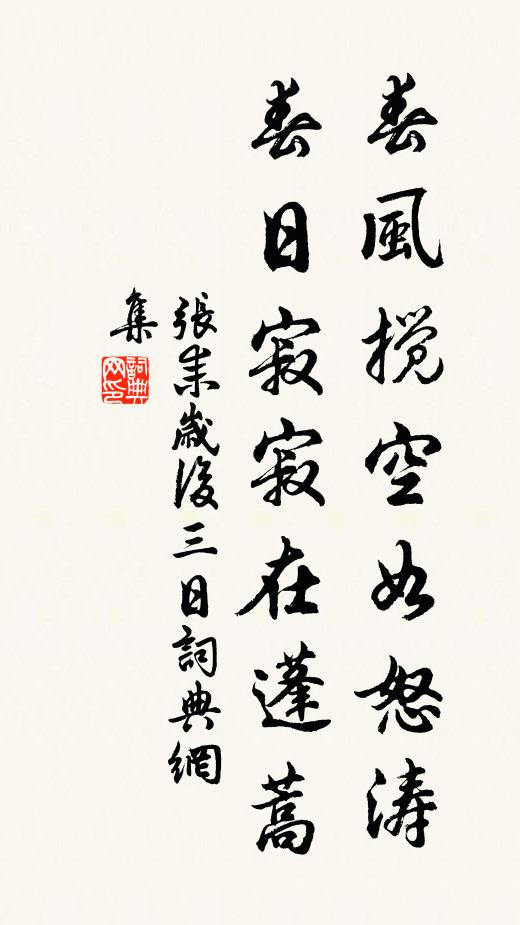 春風搅空如怒涛
春日寂寂在蓬蒿
張耒歲後三日詞典網
集
詞典
网印